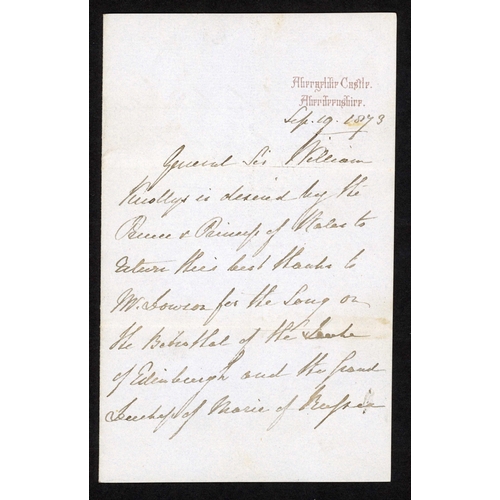 Abergeldie Castle.
Aberdeenshire.
Sep. 19. 1873
General Sir William
Knollys is desired by the
Prince & Princess of Wales to
return their best thanks to
Mr. Lowson for the Song on
the Bethrothal of the Duke
of Edinburgh and the Grand
Duchess of Marie of Russia